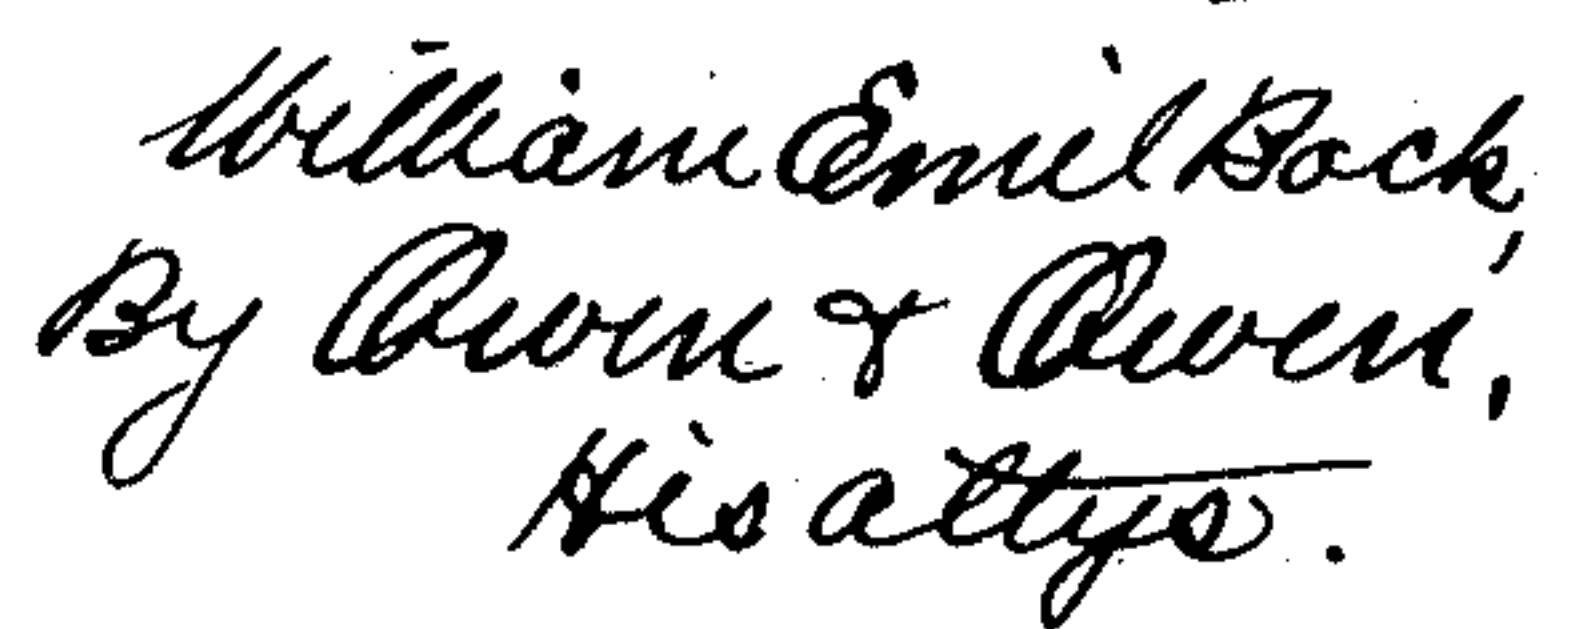 William Emil Bock,
By Owen & Owen,
His attys.